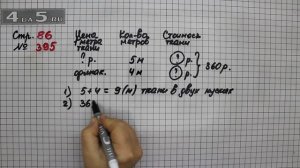 4a5.ru
Стр. 86
№ 395
Цена 1 метра ткани
Кол-во метров
Стоимость ткани
? р. 5 м ? р.
одинак. 4 м ? р.
360 р.
1) 5+4 = 9 (м) ткани в двух кусках
2) 36